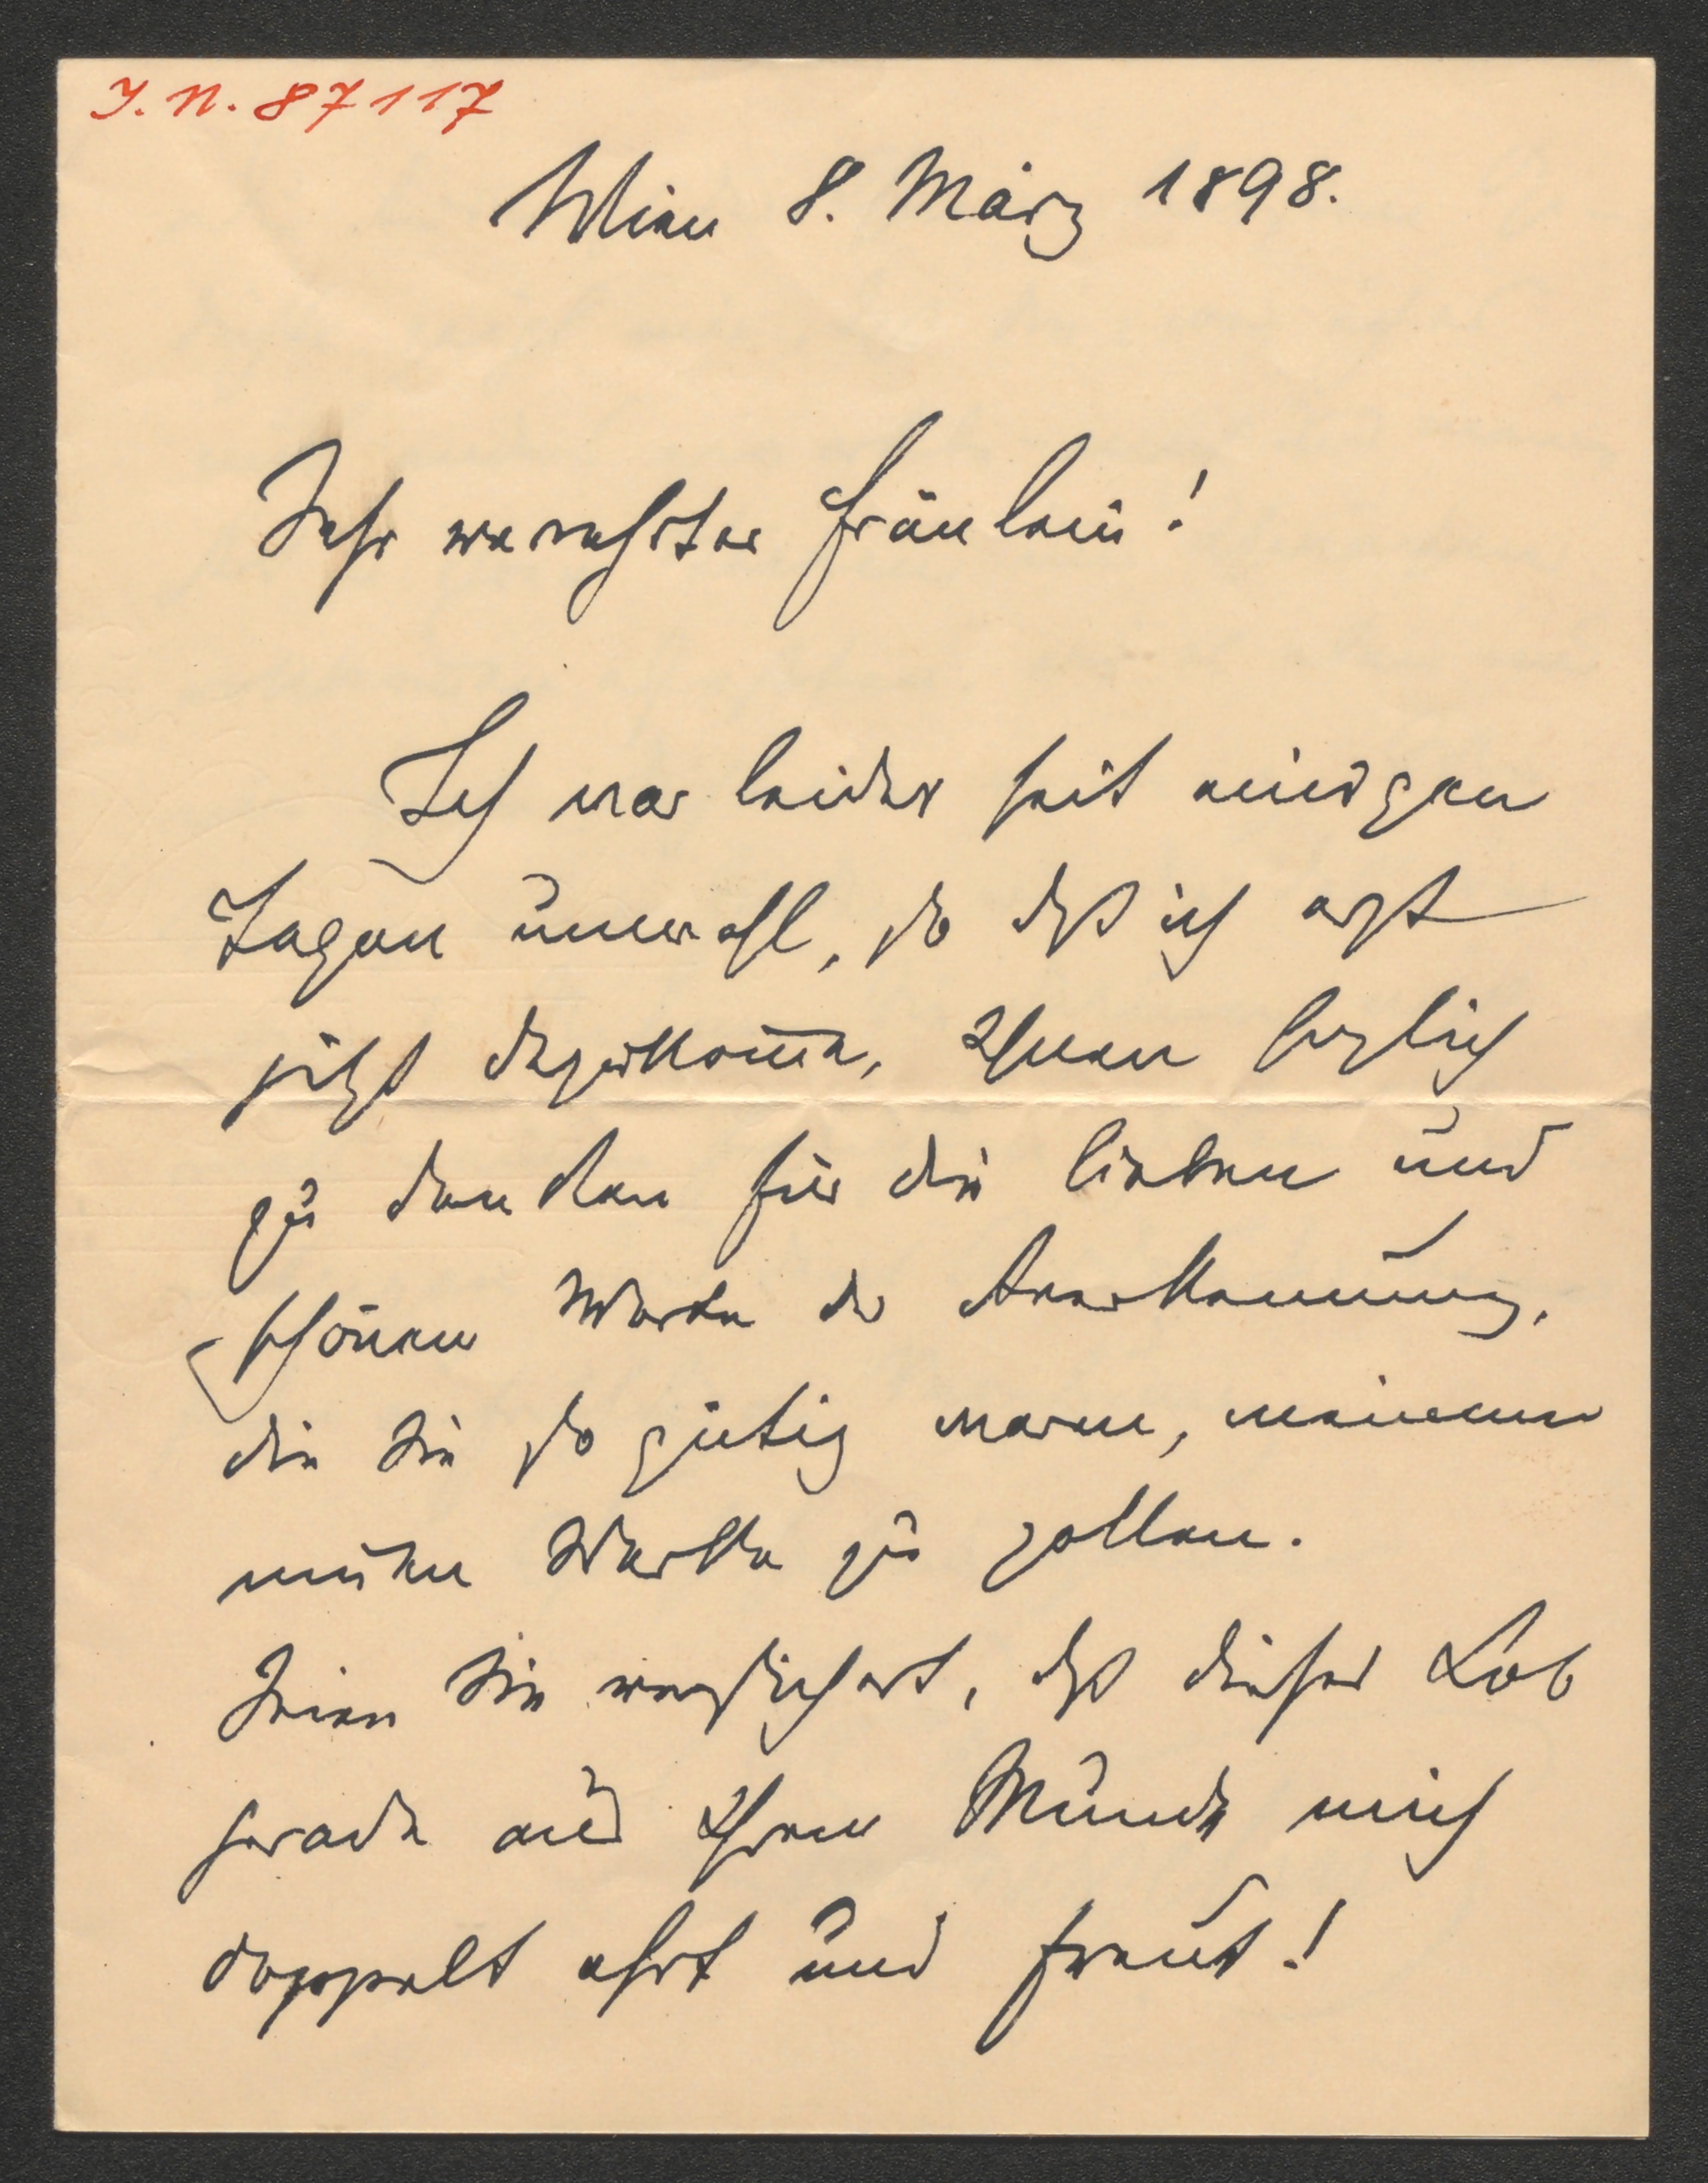 I. N. 87117
Wien 8. März 1898.
Sehr verehrtes Fräulein!
Ich war leider seit einigen
Tagen unwohl, so daß ich erst
jetzt dazukom̅e, Ihnen herzlich
zu danken für die lieben und
schönen Worte der Anerkennung,
die Sie so gütig waren, meinem
neuen Werke zu zollen.
Seien Sie versichert, daß dieses Lob
gerade aus Ihrem Munde mich
doppelt ehrt und freut!